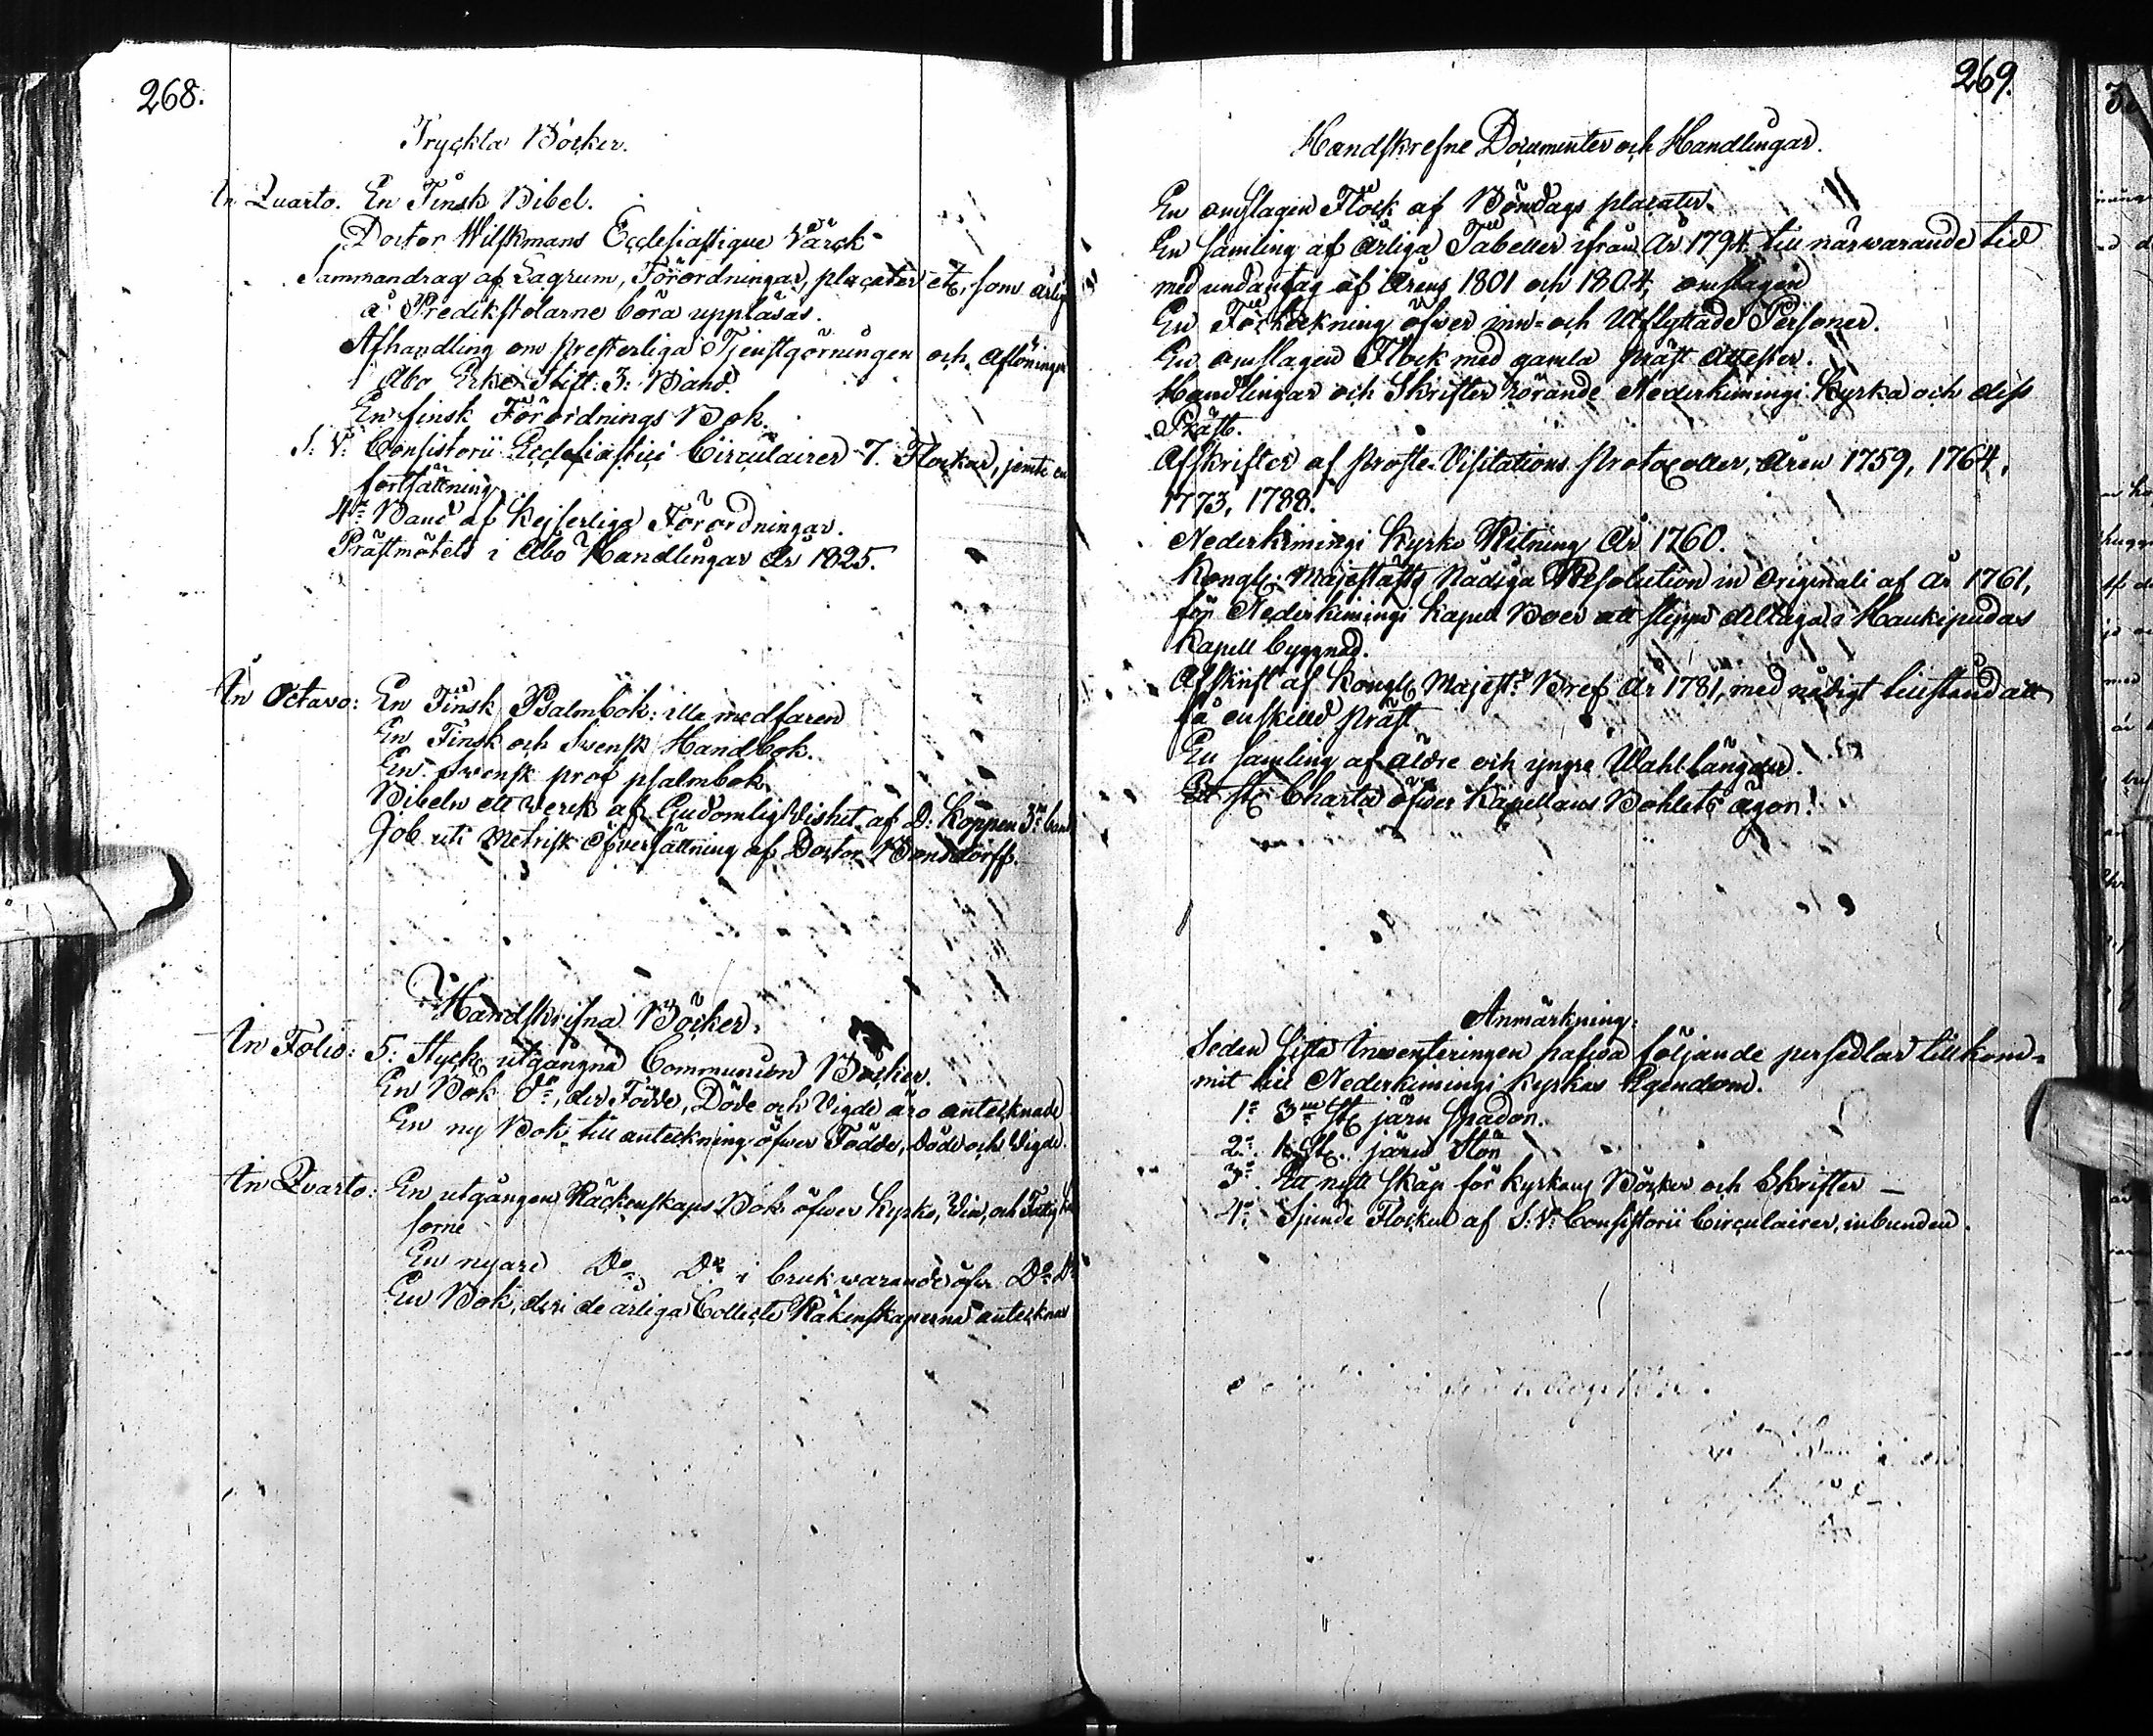 268.
Tryckta Böcker.
In Quarto. En Finsk Bibel.
Doctor Wilskmans Ecclesiastique Värck
Sammandrag af Lagrum, Förordningar, placater etc, som årlig
å Predikstolarne böra uppläsas.
Afhandling om presterliga Tjenstgörningen och Aflöningen
i Åbo Erke Stift. 3: Band.
En finsk Förordnings Bok.
S. V. Consistorii Ecclesiastici Circulairer 7. Flockar, jemte en
fortsättning
4ra Band af Kejserliga Förordningar.
Prästmötets i Åbo Handlingar År 1825.
In Octavo: En Finsk Psalmbok: illa medfaren
En Finsk och Swensk Handbok.
En Swensk prof psalmbok
Bibeln ett werck af Gudomlig Vishet af D: Köppen 3ne
Job uti Metrisk öfversättning af Doctor Bonsdorff.
Handskrifna Böcker.
In Folio: 5. Stycke utgångna Communion Böcker.
En Bok do, der Födde, Döde och Vigde äro antecknade
En ny Bok till anteckning öfwer Födde, Döde och Vigde.
In Quarto: En utgången Räckenskaps Bok öfwer Kyrko, Vin, och Fattig
sorne
En nyare Do Do i bruk warande öfwer Do Do
En Bok, deri de årliga Collecte Räkenskaperna antecknas
269.
Handskrefne Documenter och Handlingar.
En omslagen Flock af Böndags placater.
En samling af årliga Tabeller ifrån År 1794 till närwarande tid
med undantag af Årens 1801 och 1804, omslagen
En Förteckning öfwer inn- och Utflyttade Personer.
En omslagen Flock med gamla präst Attester.
Handlingar och Skrifter rörande Nederkimingi Kyrka och dess
Präst.
Afskrifter af Proste-Visitations Protocoller, Åren 1759, 1764,
1773, 1788.
Nederkimingi Kyrko Ritning År 1760.
Kongl: Majestäts Nådiga Resolution in Originali af År 1761,
för Nederkimingi Kapell Boer att slippa deltaga i Haukipudas
Kapell byggnad.
Afskrift af Kongl Majest:s Bref År 1781, med nådigt tillstånd att
få enskild Präst
En samling af äldre och yngre Wahl längder.
Ett st Charta öfwer Kapellans Bohlets ägor.
Anmärkning:
Sedan sista Inventeringen hafwa följande persedlar tillkom-
mit till Nederkimingi Kyrkas Egendom.
1o 3ne st järn Spador.
2o 1 st. järn Stör
3o Ett nytt skåp för kyrkans Böcker och Skrifter —
4o Sjunde Flocken af S: V: Consistorii Circulairer, inbunden.